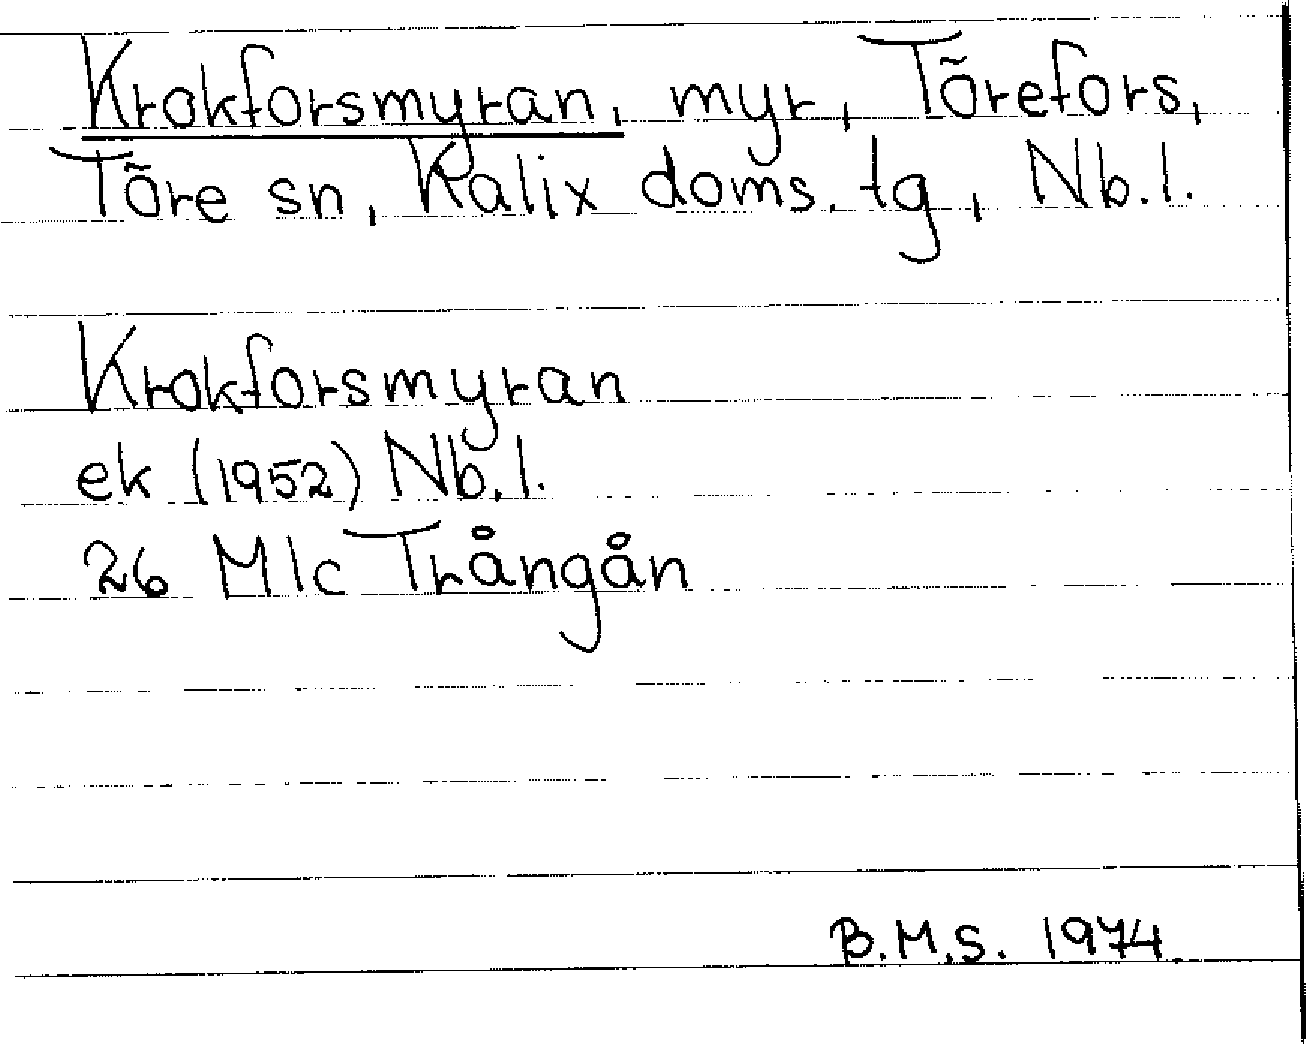 Krokforsmyran, myr, Törefors,
Töre sn, Kalix doms. tg, Nb.l.
Krokforsmyran
ek (1952) Nb.l.
26 Mlc Trångån
B.M.S. 1974